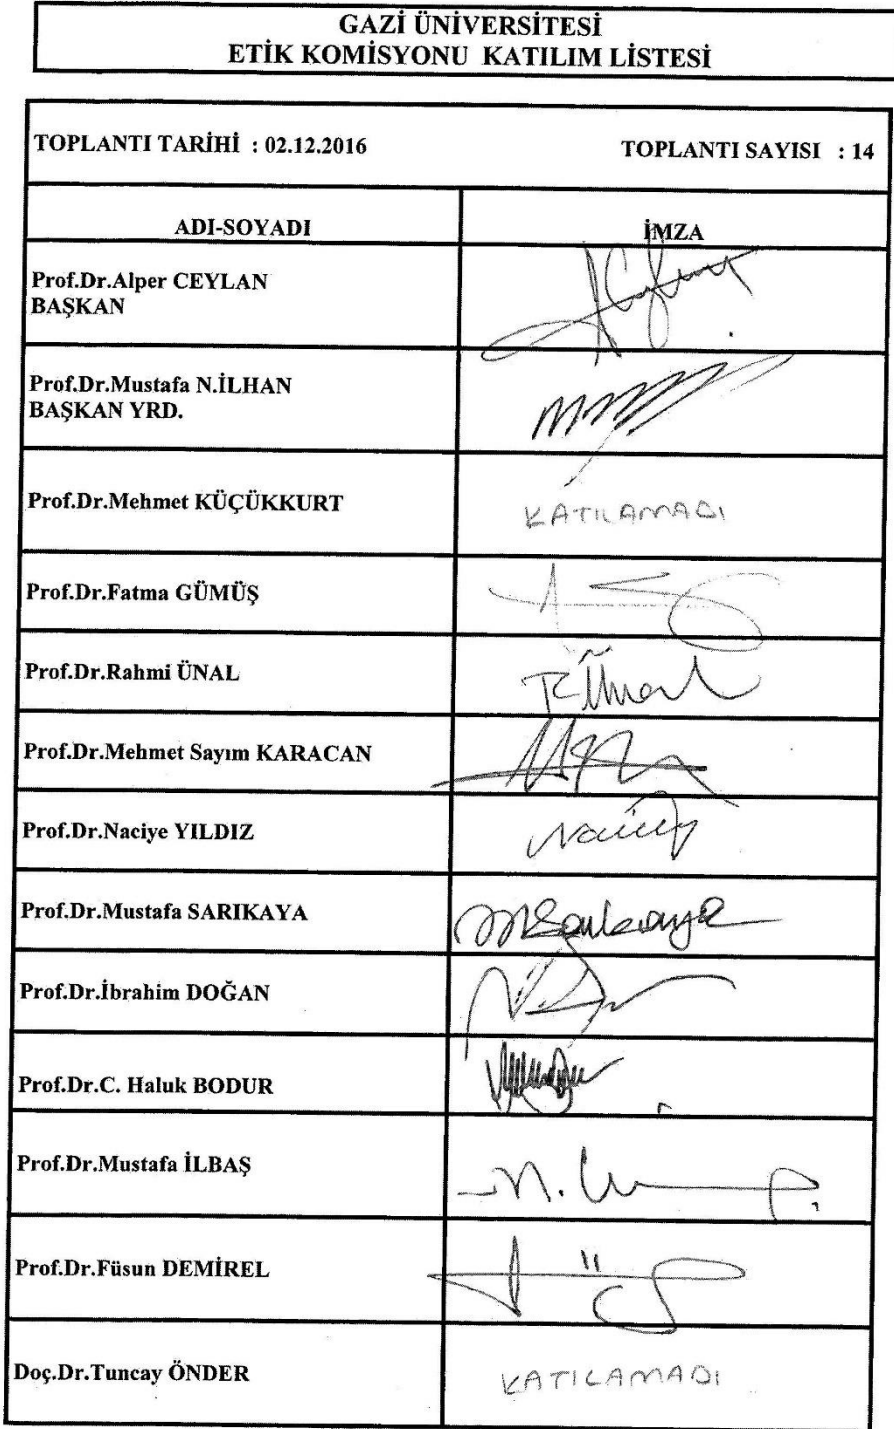 GAZİ ÜNİVERSİTESİ
ETİK KOMİSYONU KATILIM LİSTESİ
TOPLANTI TARİHİ : 02.12.2016 TOPLANTI SAYISI : 14
ADI-SOYADI İMZA
Prof.Dr.Alper CEYLAN
BAŞKAN
Prof.Dr.Mustafa N.İLHAN
BAŞKAN YRD.
Prof.Dr.Mehmet KÜÇÜKKURT KATILAMADI
Prof.Dr.Fatma GÜMÜŞ
Prof.Dr.Rahmi ÜNAL
Prof.Dr.Mehmet Sayım KARACAN
Prof.Dr.Naciye YILDIZ
Prof.Dr.Mustafa SARIKAYA
Prof.Dr.İbrahim DOĞAN
Prof.Dr.C. Haluk BODUR
Prof.Dr.Mustafa İLBAŞ
Prof.Dr.Füsun DEMİREL
Doç.Dr.Tuncay ÖNDER KATILAMADI